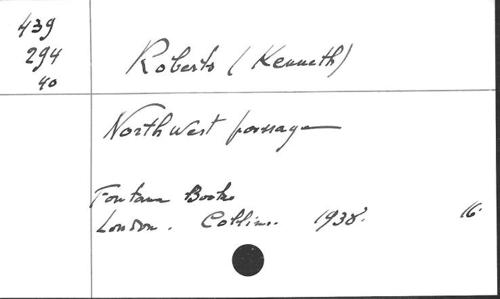 439
294
40
Roberts (Kenneth)
Northwest passage
Fontana Books
London. Collins. 1938. 16.